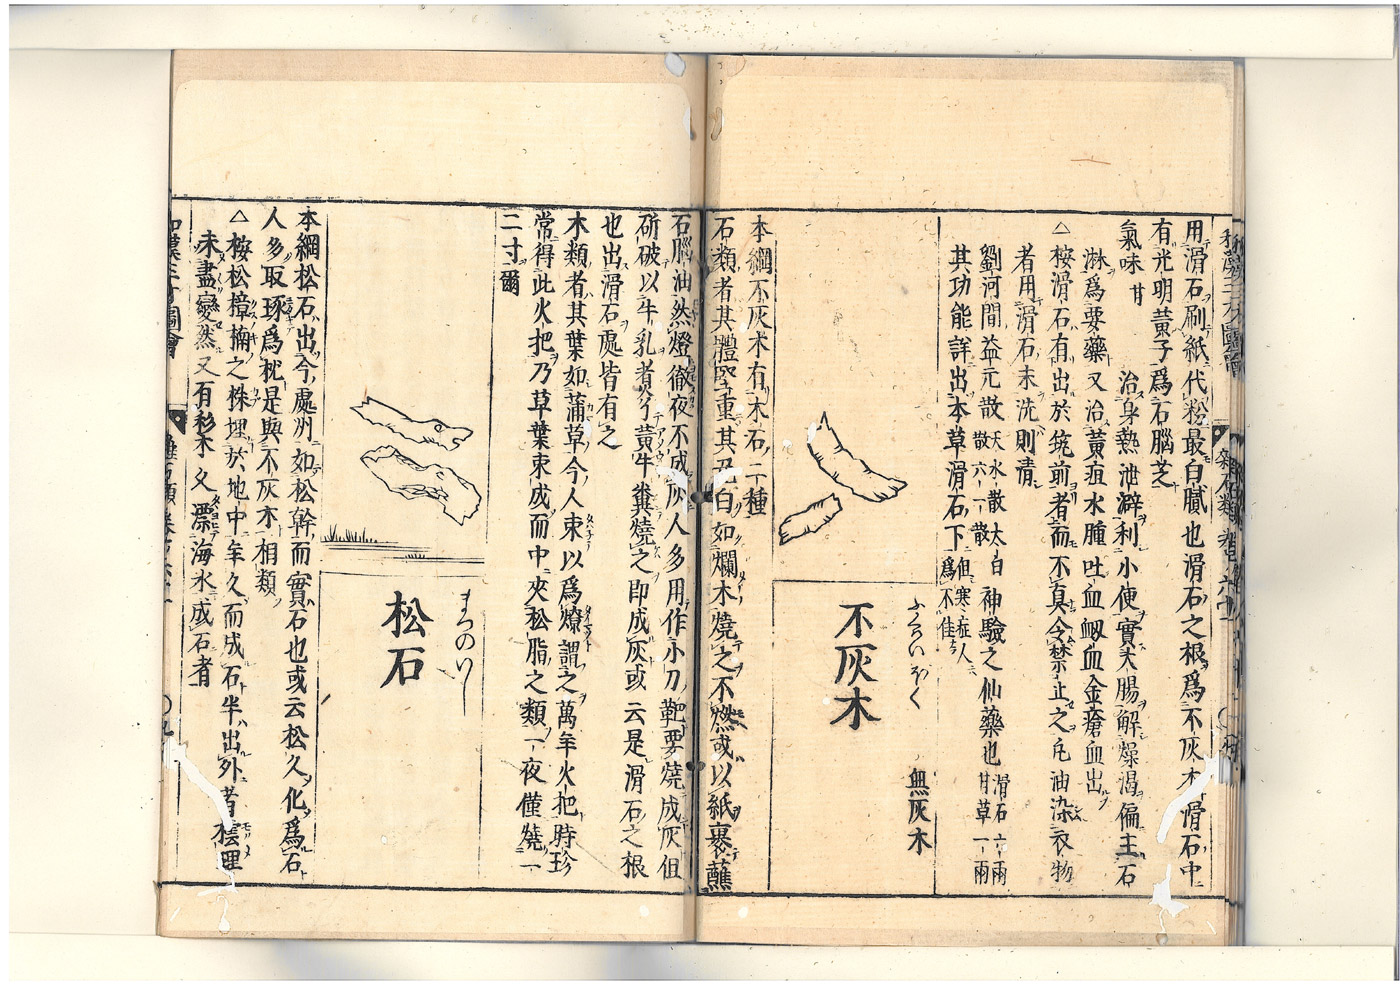 用滑石刷紙代粉最白膩也滑石之根爲不灰木滑石中
有光明黄子爲石腦芝
氣味 甘 治身熱泄澼利小便實大腸解燥渴偏主石
淋爲要藥又治黄疸水腫吐血衂血金瘡血出
△按滑石有出於筑前者而不真令禁止之凡油染衣物
者用滑石末洗則清
劉河間益元散 天水散 太白散 六一散 神驗之仙藥也 滑石六兩 甘草一兩
其功能詳出本草滑石下 但寒症人爲不佳
不灰木
無灰木
本綱不灰木有木石二種
石類者其體堅重其色白如爛木燒之不燃或以紙裹蘸
石腦油然燈徹夜不成灰人多用作小刀靶要燒成灰但
斫破以牛乳煮了黄牛糞燒之即成灰或云是滑石之根
也出滑石處皆有之
木類者其葉如蒲草今人束以爲燎謂之萬年火把時珍
常得此火把乃草葉束成而中夾松脂之類一夜僅燒一
二寸爾
松石
まつのいし
本綱松石出今處州如松幹而實石也或云松久化爲石
人多取琢爲枕是與不灰木相類
△按松樟楠之株埋於地中年久而成石半出外者木理
未盡變然又有杉木久漂海水成石者
和漢三才圖會
雜石類